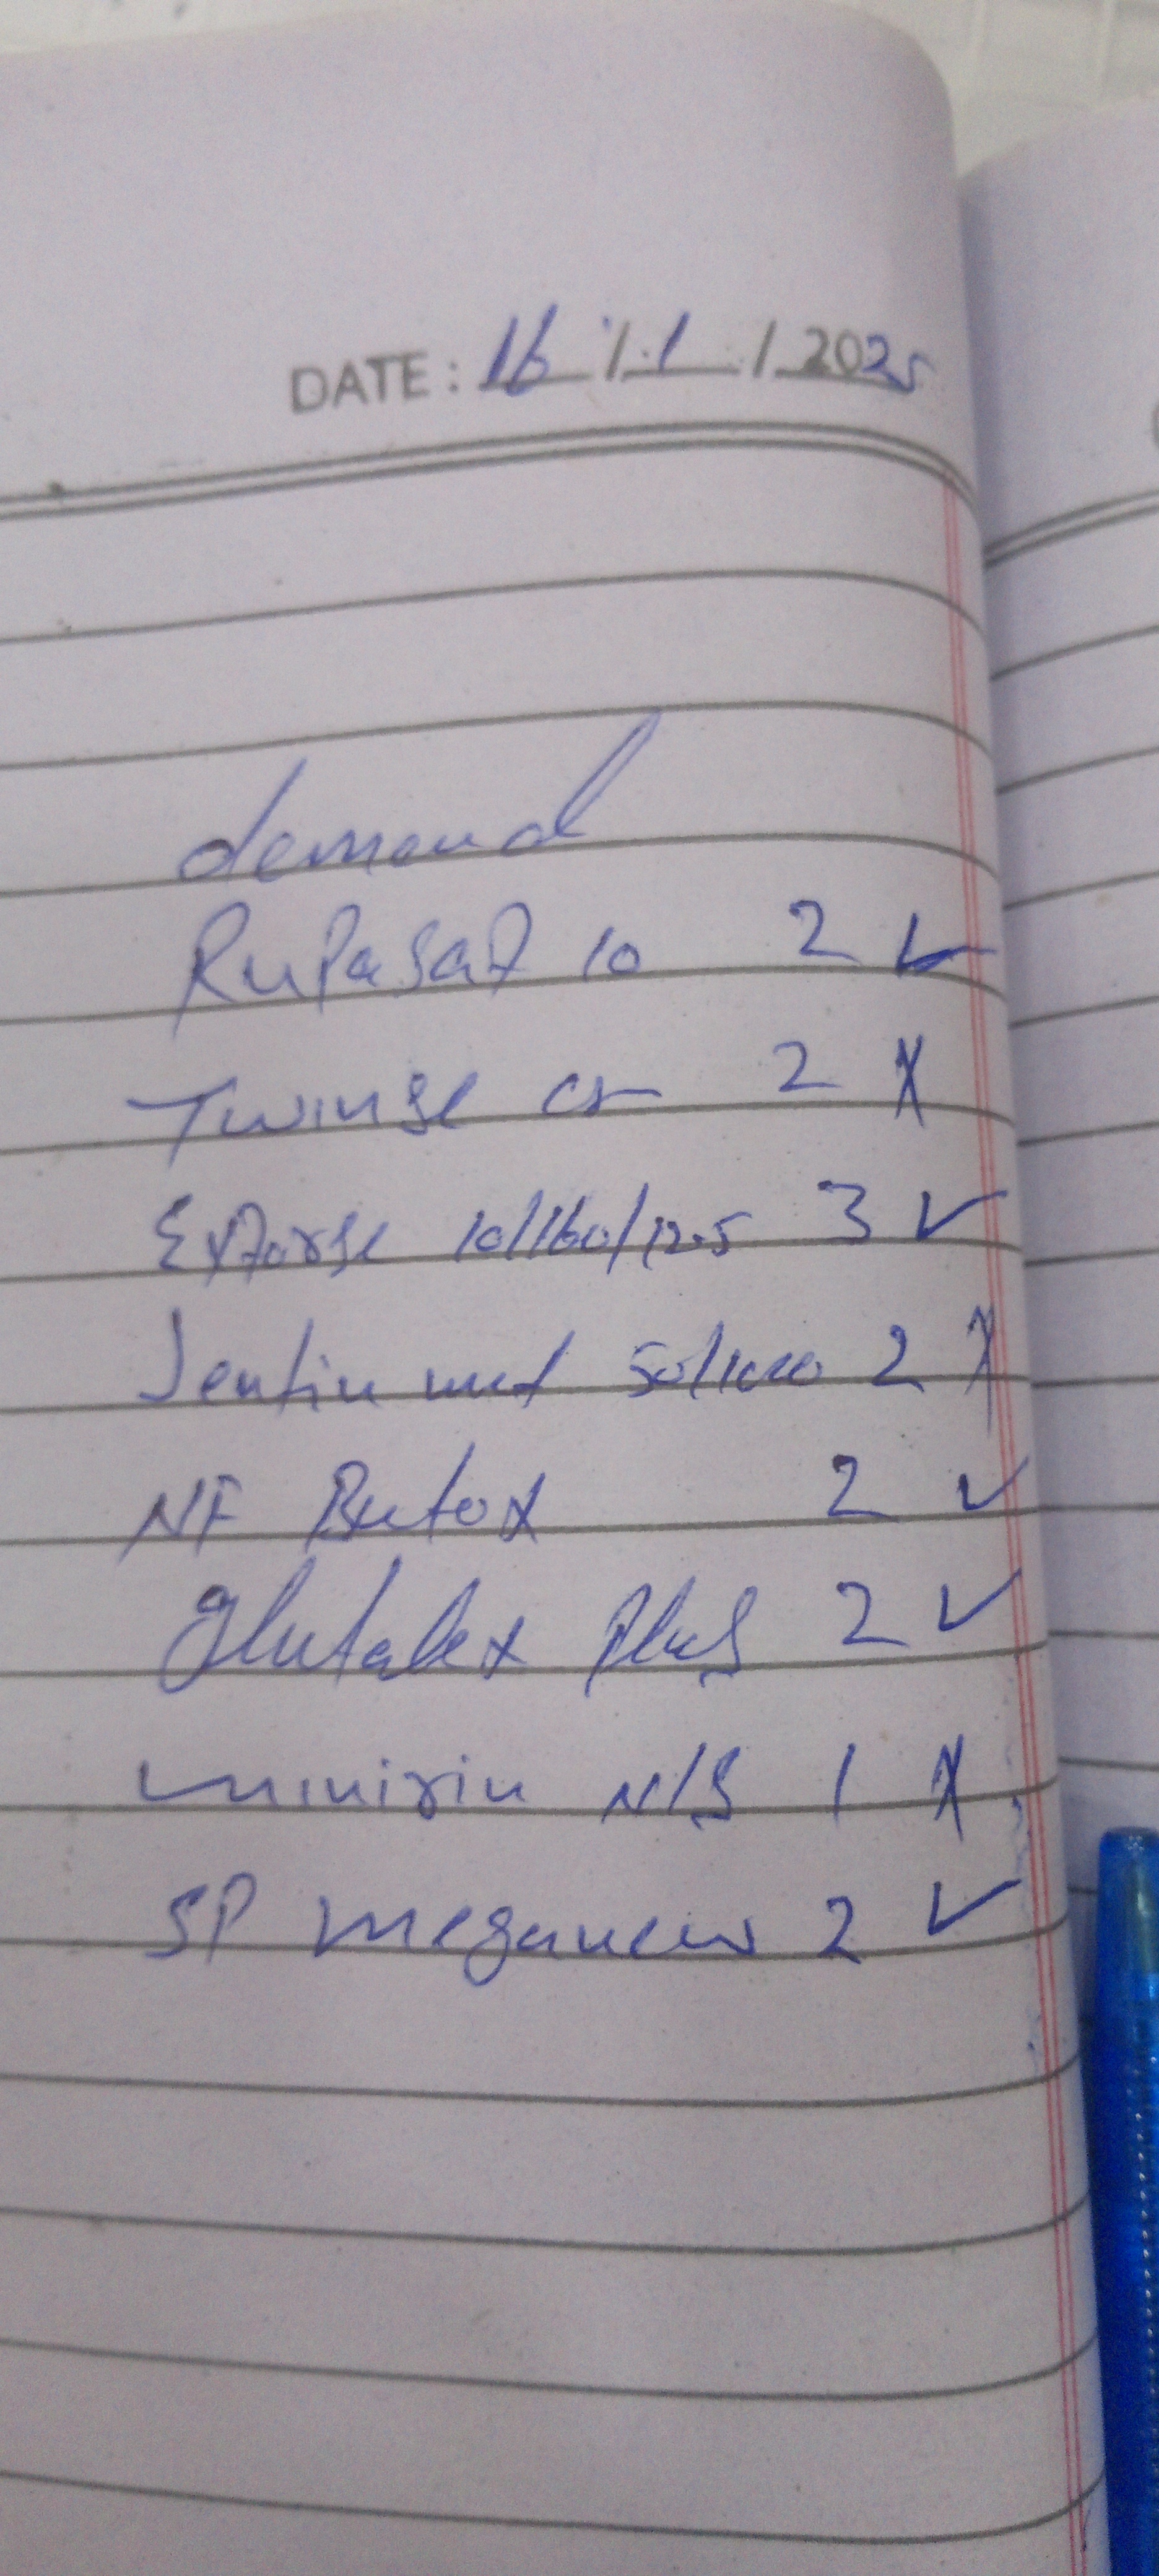 DATE: 16 / 1 / 2025
demand
Rupasat 10 2 ✓
Twinge cr 2 X
Exforge 10/160/12.5 3 ✓
Jentin met 50/1000 2 X
NF Butox 2 ✓
glutalex Plus 2 ✓
minirin N/S 1 X
SP meganew 2 ✓